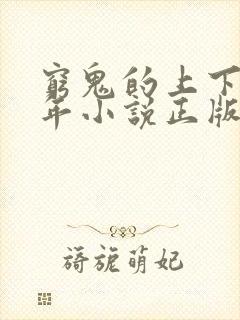 窮鬼的上下
年小說正版
旖旎萌妃